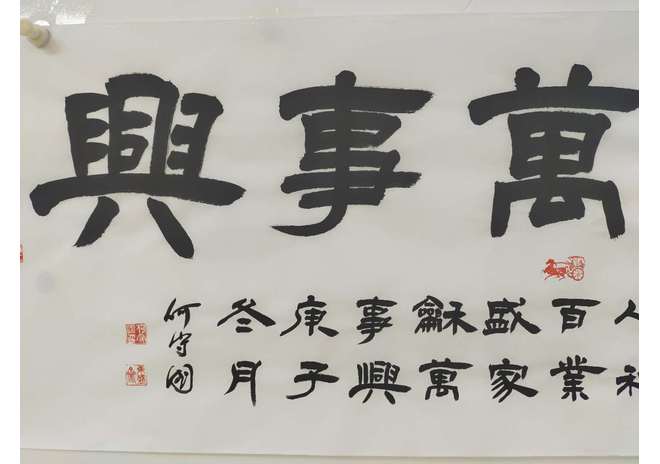 萬事興
人和
百業
盛家
龢萬
事興
庚子
冬月
何守國